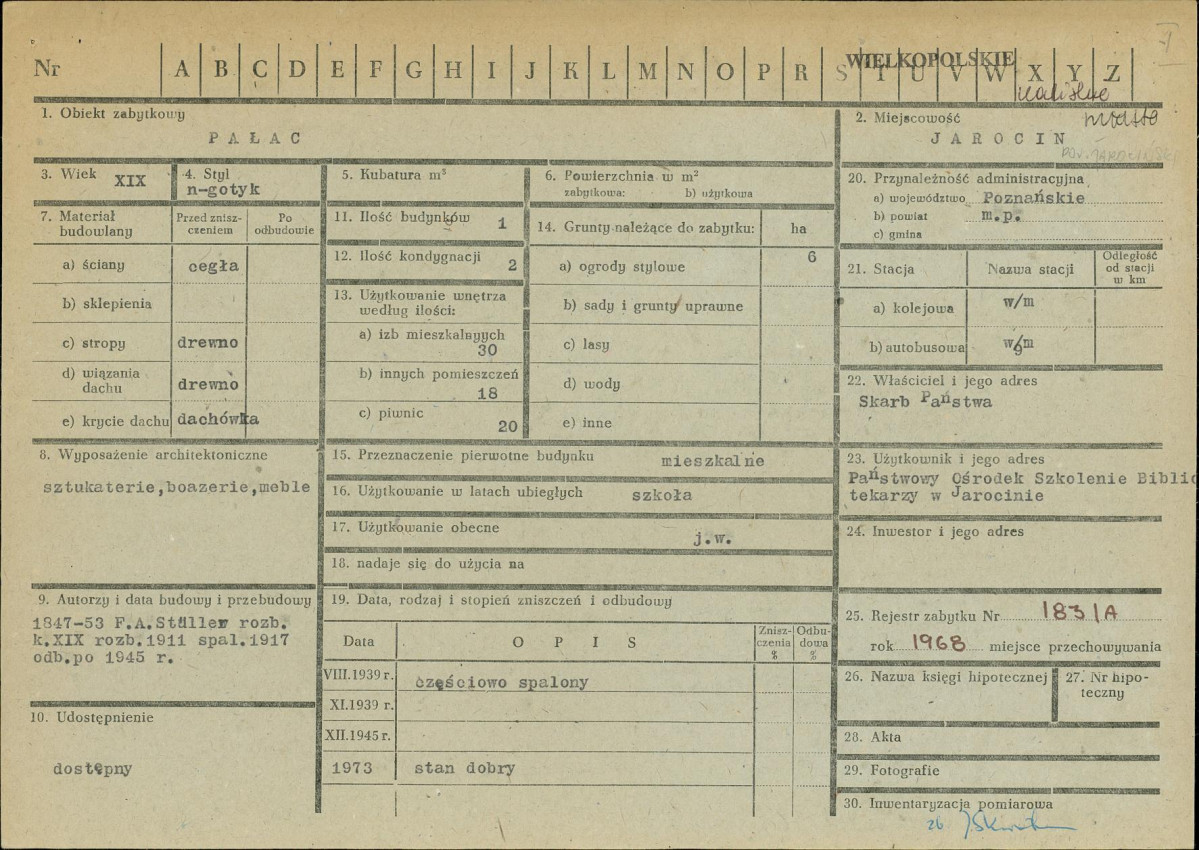 Nr A B C D E F G H I J K L M N O P R S T U V W X Y Z
WIELKOPOLSKIE
kaliskie
1. Obiekt zabytkowy
PAŁAC
2. Miejscowość
miasto
JAROCIN
pow. JAROCIŃSKI
3. Wiek XIX
4. Styl
n-gotyk
5. Kubatura m³
6. Powierzchnia w m²
zabytkowa: b) użytkowa
20. Przynależność administracyjna
a) województwo Poznańskie
b) powiat m.p.
c) gmina
7. Materiał budowlany
Przed zniszczeniem
Po odbudowie
a) ściany cegła
b) sklepienia
c) stropy drewno
d) wiązania dachu drewno
e) krycie dachu dachówka
11. Ilość budynków 1
12. Ilość kondygnacji 2
13. Użytkowanie wnętrza
według ilości:
a) izb mieszkalnych
30
b) innych pomieszczeń
18
c) piwnic
20
14. Grunty należące do zabytku: ha
a) ogrody stylowe 6
b) sady i grunty uprawne
c) lasy
d) wody
e) inne
21. Stacja
Nazwa stacji
Odległość
od stacji
w km
a) kolejowa w/m
b) autobusowa w/m
22. Właściciel i jego adres
Skarb Państwa
8. Wyposażenie architektoniczne
sztukaterie,boazerie,meble
15. Przeznaczenie pierwotne budynku mieszkalne
16. Użytkowanie w latach ubiegłych szkoła
17. Użytkowanie obecne
j.w.
18. nadaje się do użycia na
23. Użytkownik i jego adres
Państwowy Ośrodek Szkolenie Biblio
tekarzy w Jarocinie
24. Inwestor i jego adres
9. Autorzy i data budowy i przebudowy
1847-53 F.A.Stüller rozb.
k.XIX rozb.1911 spal.1917
odb.po 1945 r.
10. Udostępnienie
dostępny
19. Data, rodzaj i stopień zniszczeń i odbudowy
Data
OPIS
Zniszczenia %
Odbudowa %
VIII.1939 r. częściowo spalony
XI.1939 r.
XII.1945 r.
1973 stan dobry
25. Rejestr zabytku Nr 1831/A
rok 1968 miejsce przechowywania
26. Nazwa księgi hipotecznej
27. Nr hipo-
teczny
28. Akta
29. Fotografie
30. Inwentaryzacja pomiarowa